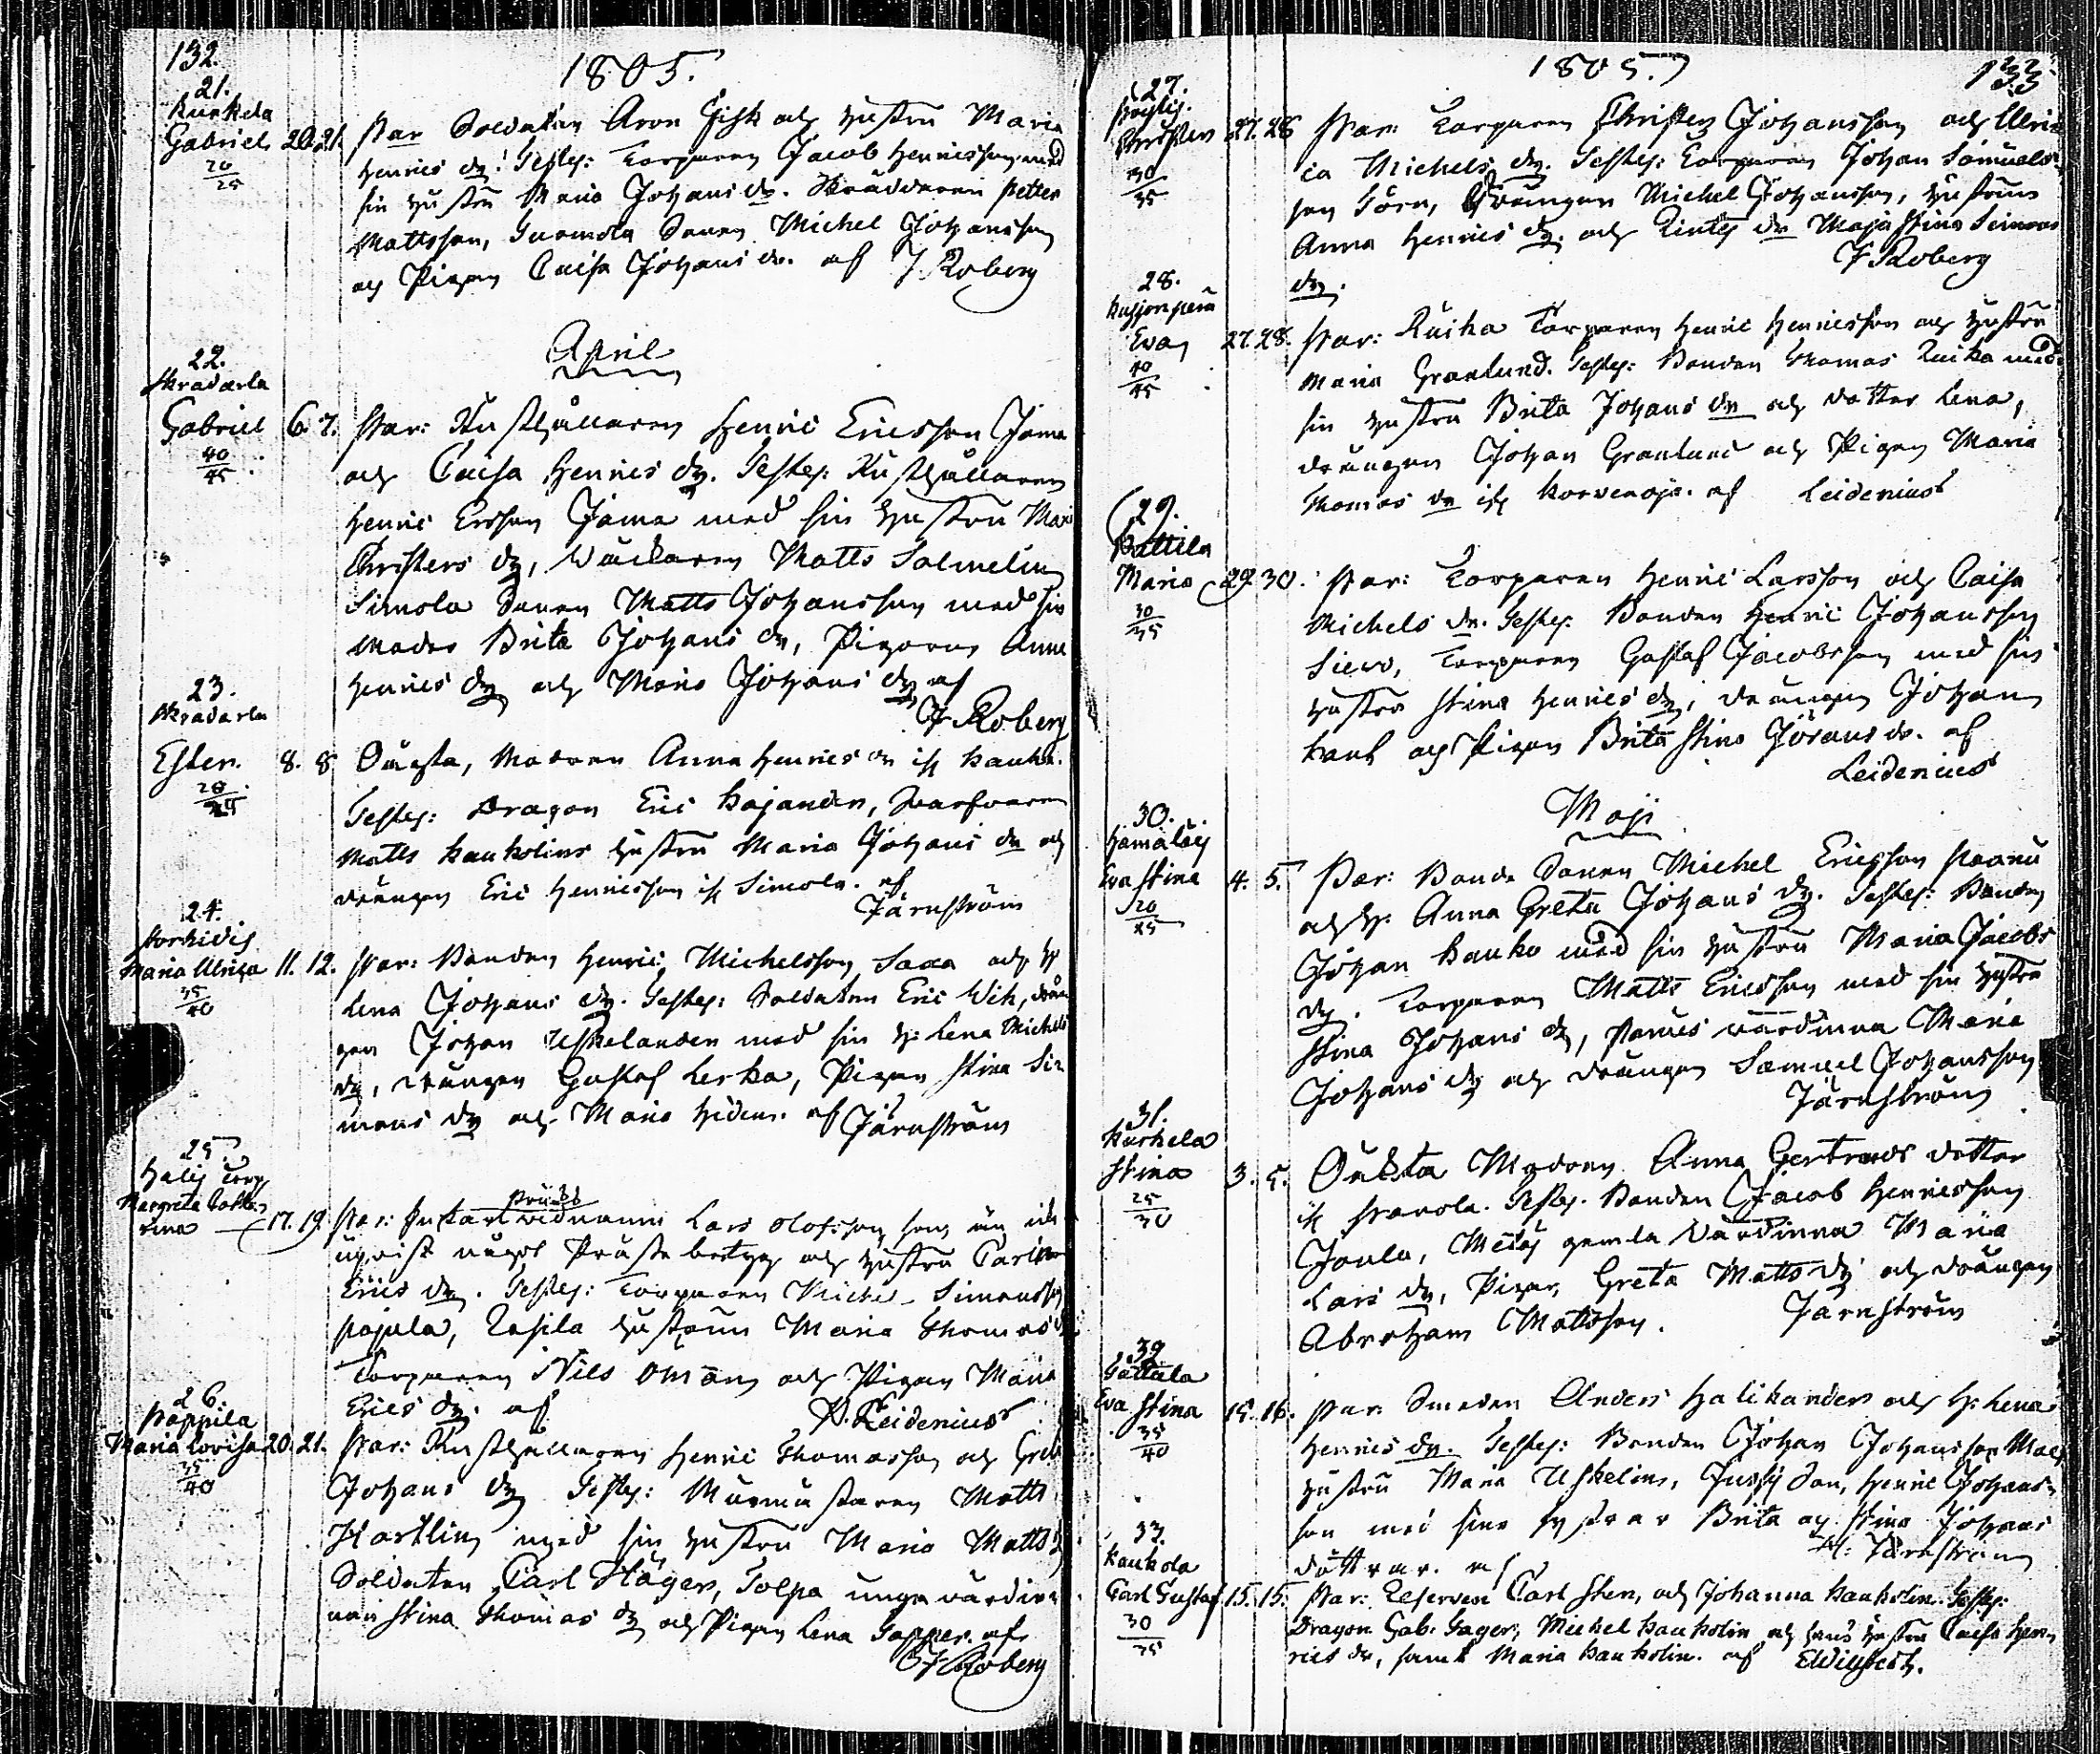 132.
1805.
21.
Kurkela
Gabriel 20. 21. Par Soldaten Aron Fisk och hustru Maria
20/25
Henrics dr. Testes: Torparen Jacob Henricsson med
sin hustru Maria Johans dr. Skräddaren Petter
Mattsson, Sonen Michel Johansson
och Pigan Caisa Johans dr. af J Roberg
April
22.
Skradarla
Gabriel 6. 7. Par: Rusthållaren Henric Ericsson Jama
40/45
och Caisa Henrics dr. Testes: Rusthållaren
Henric Ersson Jama med sin hustru Mar
Christers dr, Matts Salmelin
Simola Sonen Matts Johansson med sin
moder Brita Johans dr, Pigorna Anna
Henrics dr och Maria Johans dr af
J Roberg
23.
Skradarla
Ester. 8. 8 Oäkta, Modren Anna Henrics dr ifr Kauko.
20/25
Testes: Dragon Eric Kajander,
Matts Kaukolins hustru Maria Johans dr och
drängen Eric Henricsson ifr Simola. af
Järnström
24.
Maria Ulrica 11. 12. Par: Bonden Henric Michelsson Saxa och h
35/40
Lena Johans dr. Testes: Soldaten Eric Wik, drän
gen Johan Uskelander med sin h: Lena Michels
dr, drängen Gustaf Lerka, Pigan Stina Si
mons dr och Maria Hiden. af Järnström
25.
Halis Torp
Margreta
rina 17. 19. Par: Lars Olofsson som än icke
uppvist något Präste betyg och hustru Carin
Erics dr. Testes: Torparen Michel Simonsson
Pajula, Rasila hustrun Maria Thomas d
Torparen Nils Oman och Pigan Maria
Erics dr. af Leidenius
26.
Pappila
Maria Lovisa 20. 21. Par: Rusthållaren Henric Thomasson och Greta
35/40
Johans dr Testes: Murmästaren Matts
Hartlin med sin hustru Maria Matts d
Soldaten Carl Häger, Tolpa unga värdin
nan Stina Thomas dr och Pigan Lena af
J Roberg
1805.
133
27.
Christer 27. 28 Par: Torparen Christer Johansson och Ulri
30/35
ca Michels dr. Testes: Torparen Johan Samuels
son Sorn, Drängen Michel Johansson, hustrun
Anna Henrics dr. och dr Maja Stina Simons
dr.
J Roberg
28.
Eva 27. 28. Par: Ruika Torparen Henric Henricsson och hustru
40/45
Maria Granlund. Testes: Bonden Thomas Ruika med
sin hustru Brita Johans dr och dotter Lena,
drängen Johan Granlund och Pigan Maria
Thomas dr ifr Korvenoja. af Leidenius
29.
Pattila
Maria 29. 30. Par: Torparen Henric Larsson och Caisa
30/35
Michels dr. Testes: Bonden Henric Johansson
Siews, Torparen Gustaf Jacobsson med sin
hustru Stina Henrics dr, drängen Johan
och Pigan Brita Stina Johans dr. af
Leidenius
Maji
30.
Eva Stina 4. 5. Par: Bonde Sonen Michel Ericsson
20/25
och h: Anna Greta Johans dr. Testes: Bonden
Johan Kauko med sin hustru Maria Jacobs
dr. Torparen Matts Ericsson med sin hustru
Stina Johans dr, värdinna Maria
Johans dr och drängen Samuel Johansson
Järnström
31.
Kurkela
Stina 3. 5. Oäkta Modren Anna Gertruds dotter
25/30
ifr Pavola. Testes: Bonden Jacob Henricsson
Joula, gamla värdinna Maria
Lars dr, Pigan Greta Matts dr och drängen
Abraham Mattsson. Järnström
32
Eva Stina 15. 16. Par: Smeden Anders Halikander och h: Lena
35/40
Henrics dr. Testes: Bonden Johan Johansson
hustru Maria Uskelins, Jussi Son, Henric Johans
son med sina systrar Brita och Stina Johans
döttrar. af Järnström
33.
Kaukola
Carl Gustaf 15. 15. Par: Reserven Carl Sten, och Johanna Kaukolin. Testes:
30/35
Dragon Gab: Sager, Michel Kaukolin och hans hustru Caisa Hen
rics dr, samt Maria Kaukolin. af